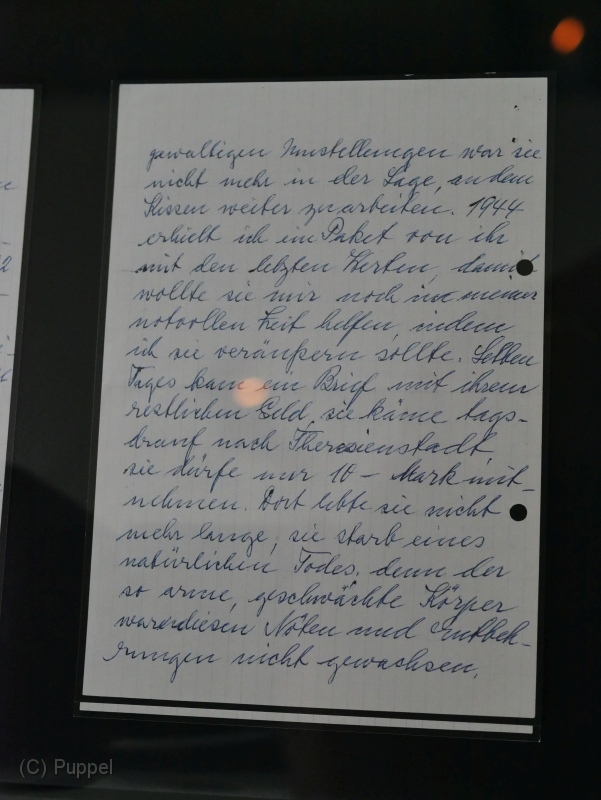 gewaltigen Umstellungen war sie
nicht mehr in der Lage, an dem
Kissen weiter zu arbeiten. 1944
erhielt ich ein Paket von ihr
mit den letzten Werten, damit
wollte sie mir noch in meiner
notvollen Zeit helfen, indem
ich sie veräußern sollte. Selben
Tages kam ein Brief mit ihrem
restlichen Geld, sie käme tags-
drauf nach Theresienstadt,
sie dürfe nur 10 - Mark mit-
nehmen. Dort lebte sie nicht
mehr lange, sie starb eines
natürlichen Todes, denn der
so arme, geschwächte Körper
war diesen Nöten und Entbeh-
rungen nicht gewachsen.
(C) Puppel